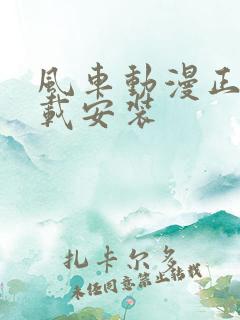 風車動漫正
載安裝
扎卡尔多
未经同意禁止转载